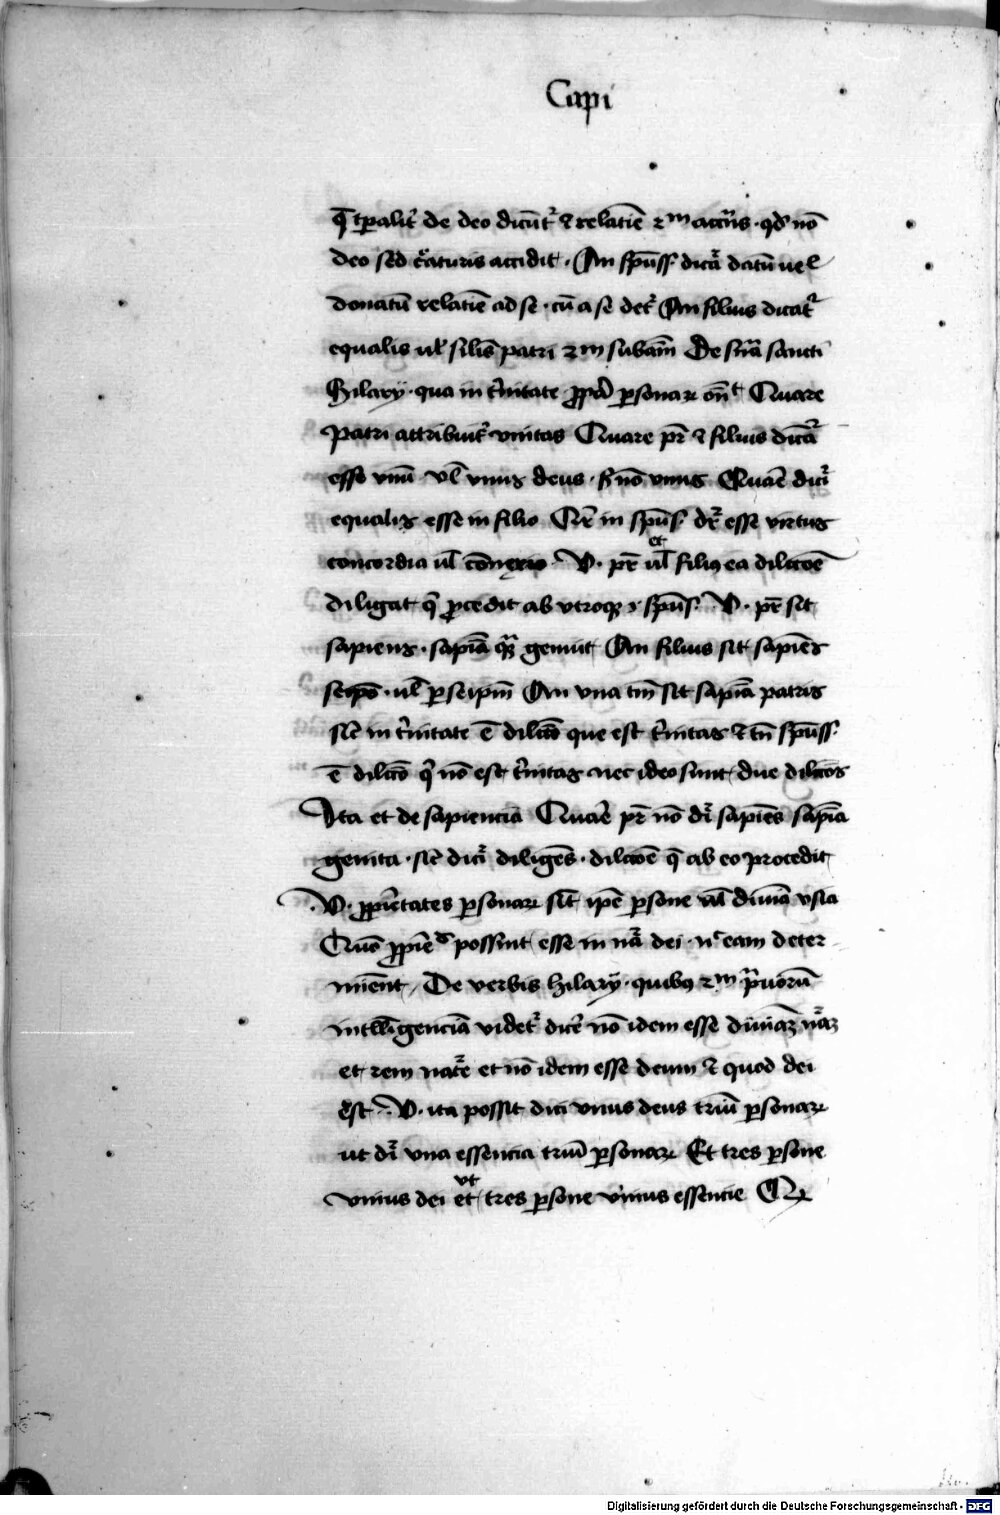 Capi
q̄ tꝑalit᷑ de deo dicūt᷑ ⁊ relatiē ⁊m accn̄s · qd̓ nō
deo sed c᷑aturis accidit · An sp̄uss᷑ dicat᷑ datū uel
donatū relatiē ad se · cū a se det᷑ An filius dicat᷑
equalis ul᷑ silis̄ patri ⁊m subam̄ De sn̄ia sancti
Hilarÿ · qua in t᷑nitate ꝓpa᷑ ꝑsonaꝝ on̄t Quare
Patri attribuit᷑ vnitas Quare pr̄ ⁊ filius dicat᷑
esse vnū vl᷑ vnus deus · s̄ nō vnus Quare᷑ dicit᷑
equalis esse in filio Qr̄ in sp̄us᷑ dr̄ esse virtus
concordia ul᷑ cōnexio V · pr̄ et ul᷑ filiꝯ ea dilcōe᷑
diligat q̄ ꝓcedit ab vtroqꝫ · s᷑ · sp̄us᷑ V · pr̄ sit
sapiens · sapīa quā genuit An filius sit sapiēs
seip̄o · ul᷑ ꝑ seipm̄ An vna tm̄ sit sapīa patris
sic̄ in t᷑nitate ē dilcō que est t᷑nitas ⁊ tn̄ sp̄uss᷑
ē dilcō q̄ nō est t᷑nitas nec ideo sunt due dilcōs
Ita et de sapiencia Quare᷑ pr̄ nō dr̄ sapiēs sapīa
genita · sic̄ dicit᷑ diligēs · dilcōe q̄ ab eo procedit
V · ꝓp᷑ietates ꝑsonaꝝ sīt ip̄e ꝑsone ul᷑ diuīa vsia
Quō ꝓp᷑ie᷑ possint esse in nā dei · n᷑ eam deter
minent De verbis hilarÿ · quibꝯ ⁊m p᷑uorū
intll᷑igenciā videt᷑ dicē nō idem esse diuināꝝ nāꝝ
et rem nat᷑e et nō idem esse deum ⁊ quod dei
est V · ita possit dici vnus deus triū ꝑsonaꝝ
ut dr̄ vna essencia triū ꝑsonaꝝ Et tres ꝑsone
vnius dei et vt tres ꝑsone vnius essencie Qꝝ
Digitalisierung gefördert durch die Deutsche Forschungsgemeinschaft - DFG